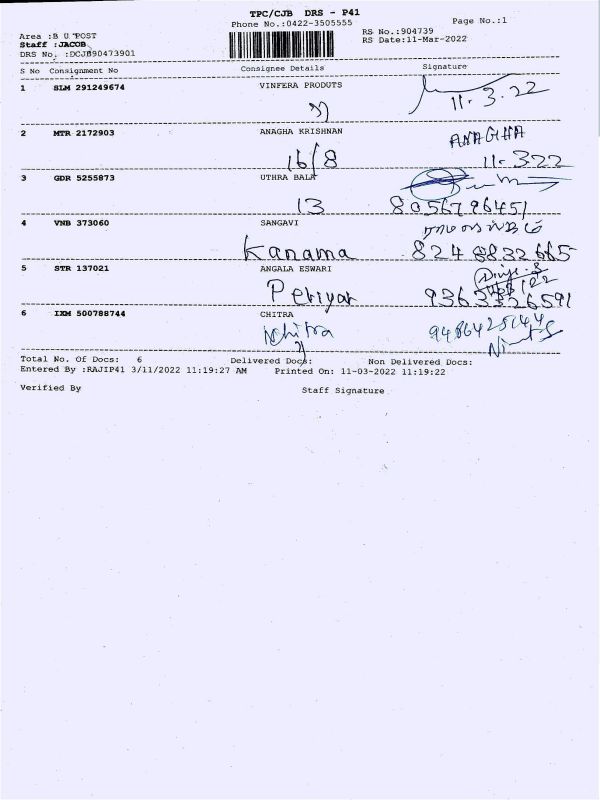 TPC/CJB DRS - P41
Phone No.:0422-3505555
Page No.:1
Area :B U POST
RS No.:904739
Staff :JACOB
RS Date:11-Mar-2022
DRS No. :DCJB90473901
S No Consignment No Consignee Details Signature
1 SLM 291249674 VINFERA PRODUTS
11.3.22
2 MTR 2172903 ANAGHA KRISHNAN ANAGHA
16/8 11.3.22
3 GDR 5255873 UTHRA BALA
13 8056796451
4 VNB 373060 SANGAVI
Kanama 824 8832665
5 STR 137021 ANGALA ESWARI
Periyar 9363326591
6 IXM 500788744 CHITRA
Nhitra 9486425144
Total No. Of Docs: 6 Delivered Docs: Non Delivered Docs:
Entered By :RAJIP41 3/11/2022 11:19:27 AM Printed On: 11-03-2022 11:19:22
Verified By Staff Signature